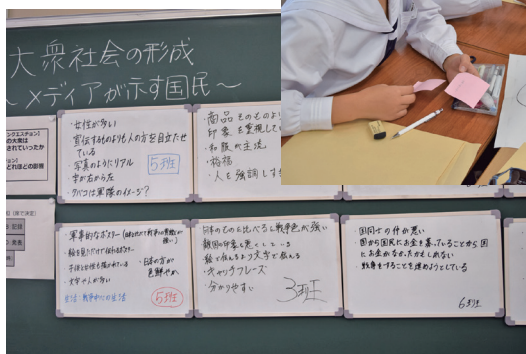 大衆社会の形成
～メディアが示す国民～
・女性が多い
宣伝するものよりも人の方を目立たせ
ている
写真のようにリアル
字が右から左
タバコは軍隊のイメージ?
5班
・商品そのものより
印象を重視して
・和服が主流
・裕福
・人を強調しす
・軍事的なポスター
・絵を見ただけで伝わるポスター
・子供と女性も描かれている
・文字や人が多い
日本の方が
色鮮やか
5班
日本のものと比べると戦争色が強い
敵国の印象を悪くしている
絵で伝えるより文字で伝える
・キャッチフレーズ
・分かりやすい
3班
・国同士の仲が悪い
・国から国民にお金を募っていることから国
にお金がなかったかもしれない
・戦争をすることを進めようとしている
6班